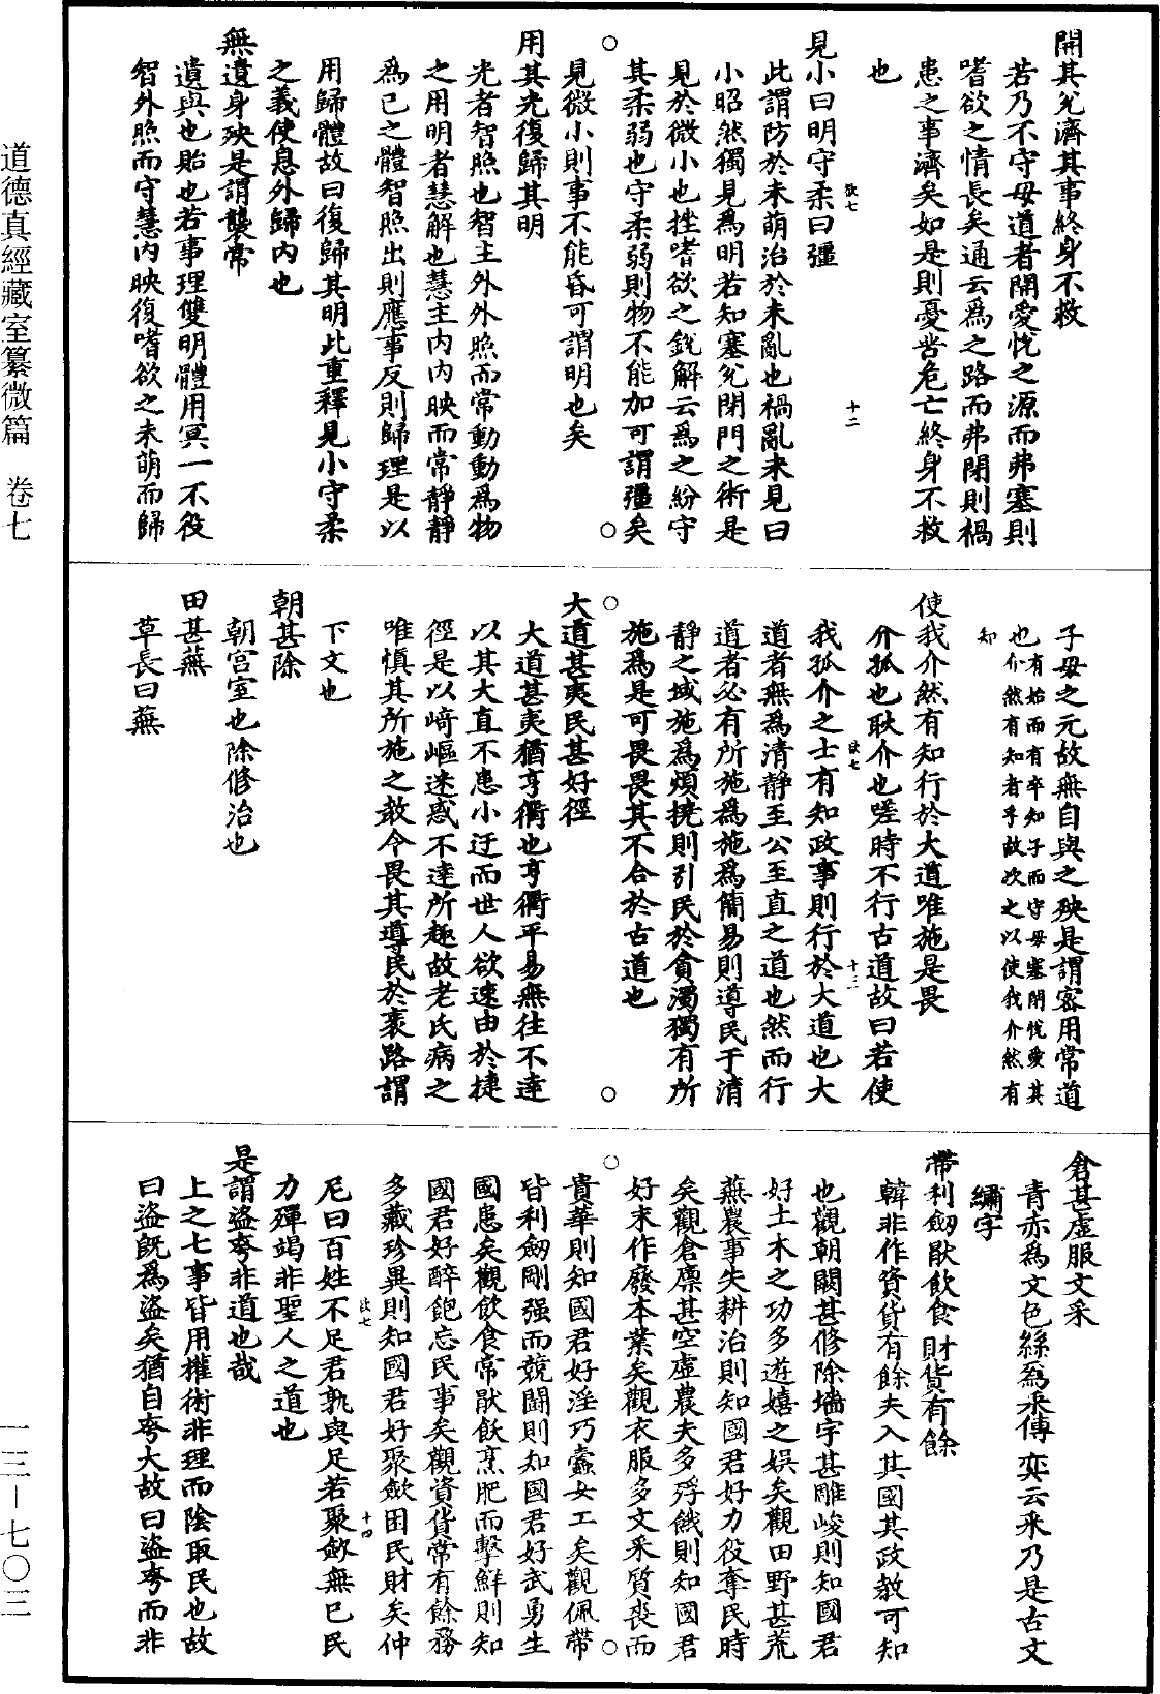 開其兌濟其事終身不救
若乃不守母道者開愛悅之源而弗塞則
嗜欲之情長矣通云爲之路而弗閉則禍
患之事濟矣如是則憂苦危亡終身不救
也
見小曰明守柔曰彊
欲七
十二
此謂防於未萌治於未亂也禍亂未見曰
小昭然獨見爲明若知塞兌閉門之術是
見於微小也挫嗜欲之銳解云爲之紛守
其柔弱也守柔弱則物不能加可謂彊矣
見微小則事不能昏可謂明也矣
用其光復歸其明
光者智照也智主外外照而常動動爲物
之用明者慧解也慧主內內映而常靜靜
爲己之體智照出則應事反則歸理是以
用歸體故曰復歸其明此重釋見小守柔
之義使息外歸內也
無遺身殃是謂襲常
遺與也貽也若事理雙明體用冥一不役
智外照而守慧內映復嗜欲之未萌而歸
子母之元故無自與之殃是謂密用常道
也有始而有卒知子而守母塞閉悅愛其
介然有知者乎故次之以使我介然有
知
使我介然有知行於大道唯施是畏
介孤也耿介也嗟時不行古道故曰若使
欲七
十三
我孤介之士有知政事則行於大道也大
道者無爲清靜至公至直之道也然而行
道者必有所施爲施爲簡易則導民于清
靜之域施爲煩撓則引民於貪濁獨有所
施爲是可畏畏其不合於古道也
大道甚夷民甚好徑
大道甚夷猶亨衢也亨衢平易無往不達
以其大直不患小迂而世人欲速由於捷
徑是以崎嶇迷惑不達所趣故老氏病之
唯慎其所施之教令畏其導民於衺路謂
下文也
朝甚除
朝宮室也除修治也
田甚蕪
草長曰蕪
倉甚虛服文采
青赤爲文色絲爲采傅奕云采乃是古文
繡字
帶利劒猒飲食財貨有餘
韓非作資貨有餘夫入其國其政教可知
也觀朝闕甚修除墻宇甚雕峻則知國君
好土木之功多遊嬉之娛矣觀田野甚荒
蕪農事失耕治則知國君好力役奪民時
矣觀倉廩甚空虛農夫多殍餓則知國君
好末作廢本業矣觀衣服多文采質喪而
貴華則知國君好淫巧蠹女工矣觀佩帶
皆利劒剛强而競鬭則知國君好武勇生
國患矣觀飲食常猒飫烹肥而擊鮮則知
國君好醉飽忘民事矣觀資貨常有餘務
多藏珍異則知國君好聚斂困民財矣仲
欲七
十四
尼曰百姓不足君孰與足若聚斂無已民
力殫竭非聖人之道也
是謂盜夸非道也哉
上之七事皆用權術非理而陰取民也故
曰盜既爲盜矣猶自夸大故曰盜夸而非
道德真經藏室纂微篇　卷七
一三—七〇三